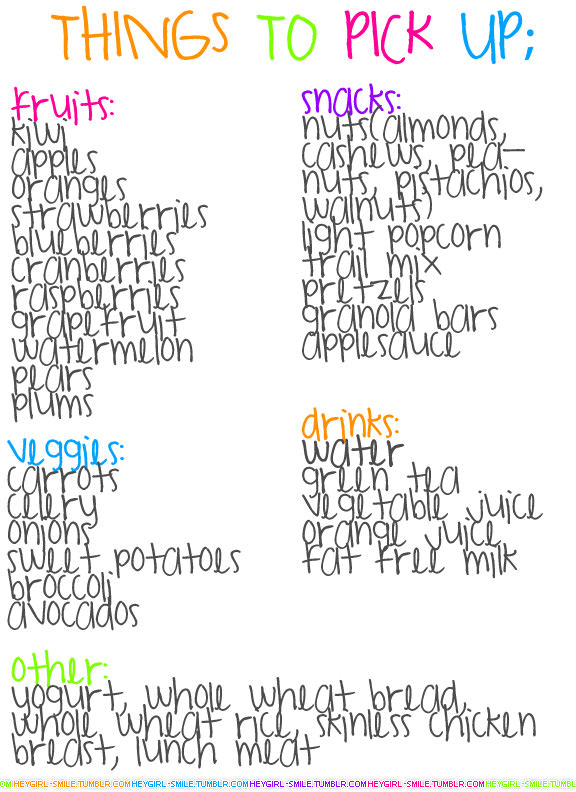 THINGS TO PICK UP;
fruits:
kiwi
apples
oranges
strawberries
blueberries
cranberries
raspberries
grapefruit
watermelon
pears
plums
veggies:
carrots
celery
onions
sweet potatoes
broccoli
avocados
snacks:
nuts(almonds,
cashews, pea-
nuts, pistachios,
walnuts)
light popcorn
trail mix
pretzels
granola bars
applesauce
drinks:
water
green tea
vegetable juice
orange juice
fat free milk
other:
yogurt, whole wheat bread,
whole wheat rice, skinless chicken
breast, lunch meat
OM HEYGIRL-SMILE.TUMBLR.COM HEYGIRL-SMILE.TUMBLR.COM HEYGIRL-SMILE.TUMBLR.COM HEYGIRL-SMILE.TUMBLR.COM HEYGIRL-